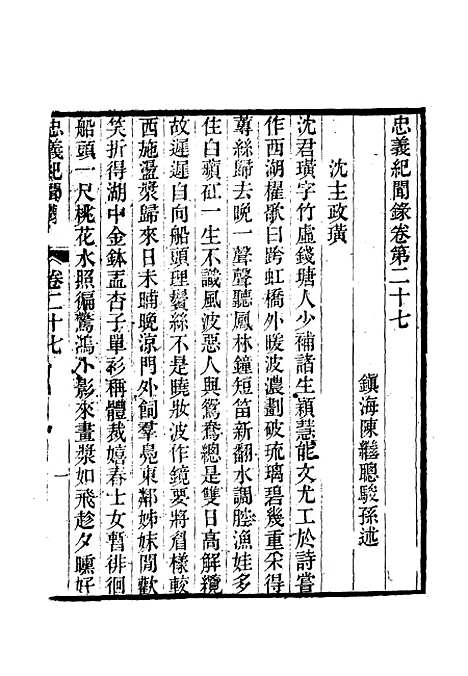 忠義紀聞錄卷第二十七
鎮海陳繼聰駿孫述
沈主政璜
沈君璜字竹虛錢塘人少補諸生穎慧能文尤工於詩嘗
作西湖櫂歌曰跨虹橋外暖波濃劃破琉璃碧幾重采得
蓴絲歸去晚一聲聲聽鳳林鐘短笛新翻水調腔漁娃多
住白蘋矼一生不識風波惡人與鴛鴦總是雙日高解纜
故遲遲自向船頭理鬢絲不是曉妝波作鏡要將眉樣較
西施盪槳歸來日未晡晚涼門外飼羣鳧東鄰姊妹閒歡
笑折得湖中金鉢盂杏子單衫稱體裁嬉春士女暫徘徊
船頭一尺桃花水照徧驚鴻小影來畫槳如飛趁夕曛好
忠義紀聞錄 卷二十七 一